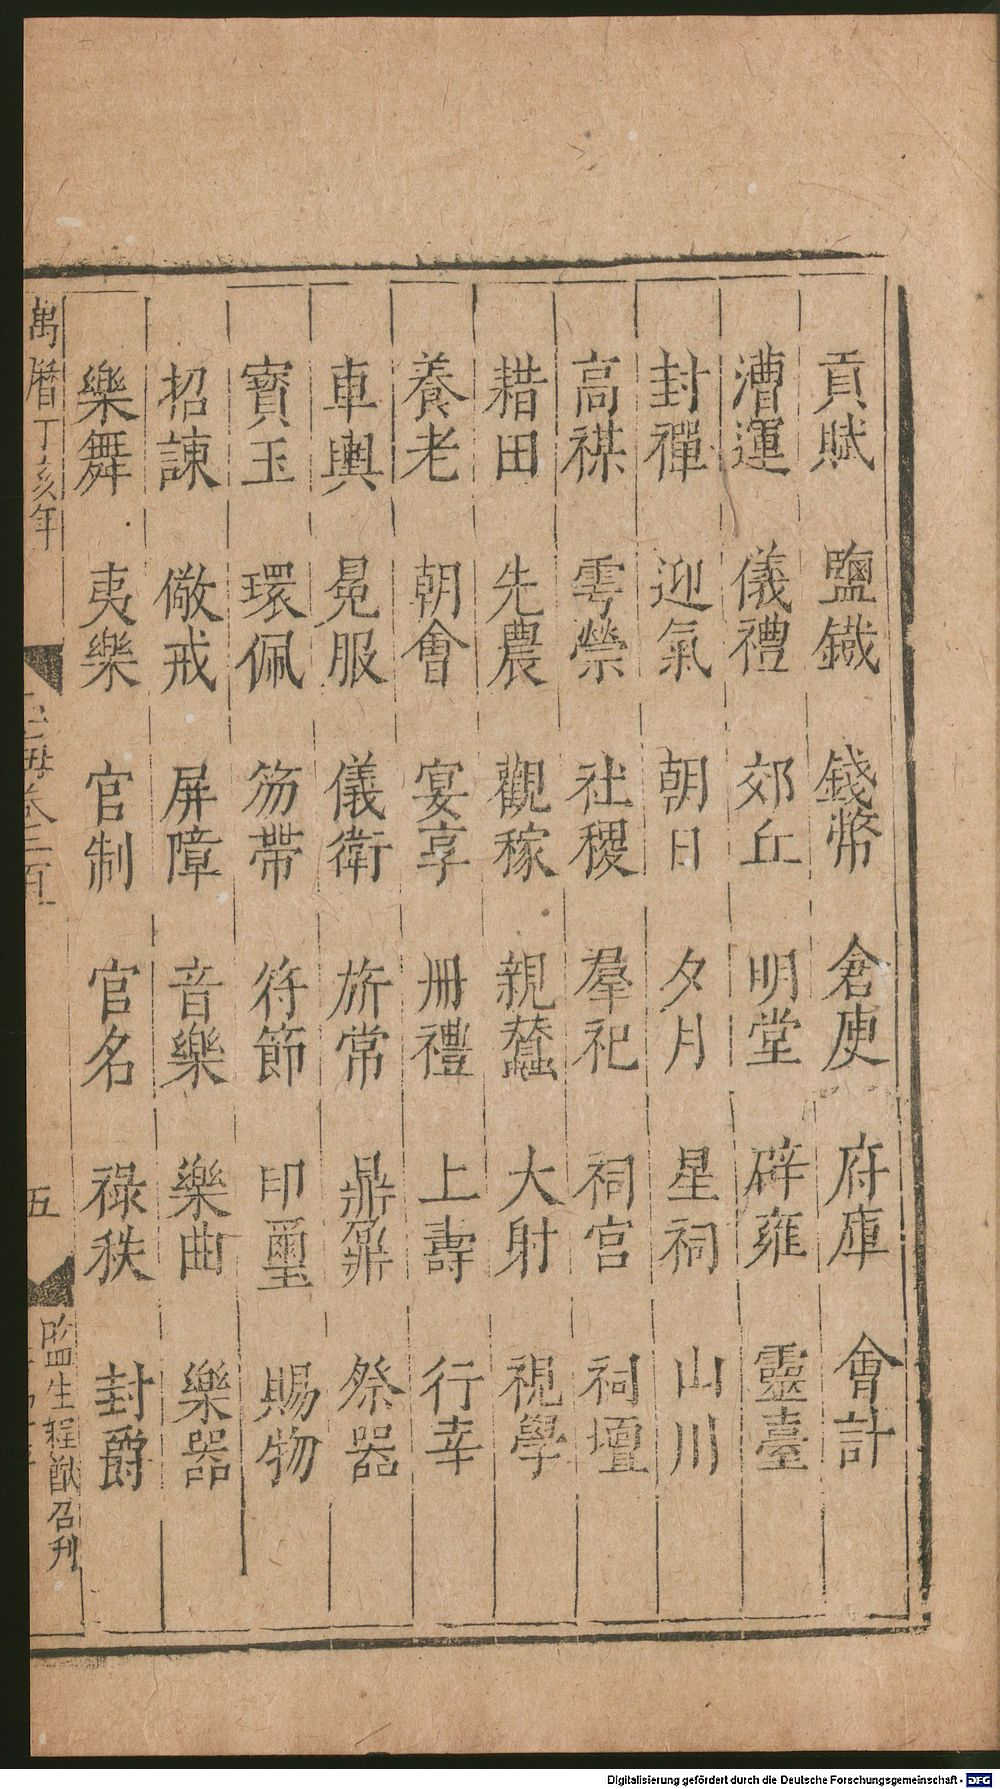 貢賦　鹽鐵　錢幣　倉庾　府庫　會計
漕運　儀禮　郊丘　明堂　辟雍　靈臺
封禪　迎氣　朝日　夕月　星祠　山川
高禖　雩禜　社稷　羣祀　祠官　祠壇
耤田　先農　觀稼　親蠶　大射　視學
養老　朝會　宴享　冊禮　上壽　行幸
車輿　冕服　儀衛　旂常　鼎鼐　祭器
寶玉　環佩　笏帶　符節　印璽　賜物
招諫　儆戒　屏障　音樂　樂曲　樂器
樂舞　夷樂　官制　官名　祿秩　封爵
萬曆丁亥年　玉海卷三百　五　監生程猷召刋
Digitalisierung gefördert durch die Deutsche Forschungsgemeinschaft - DFG